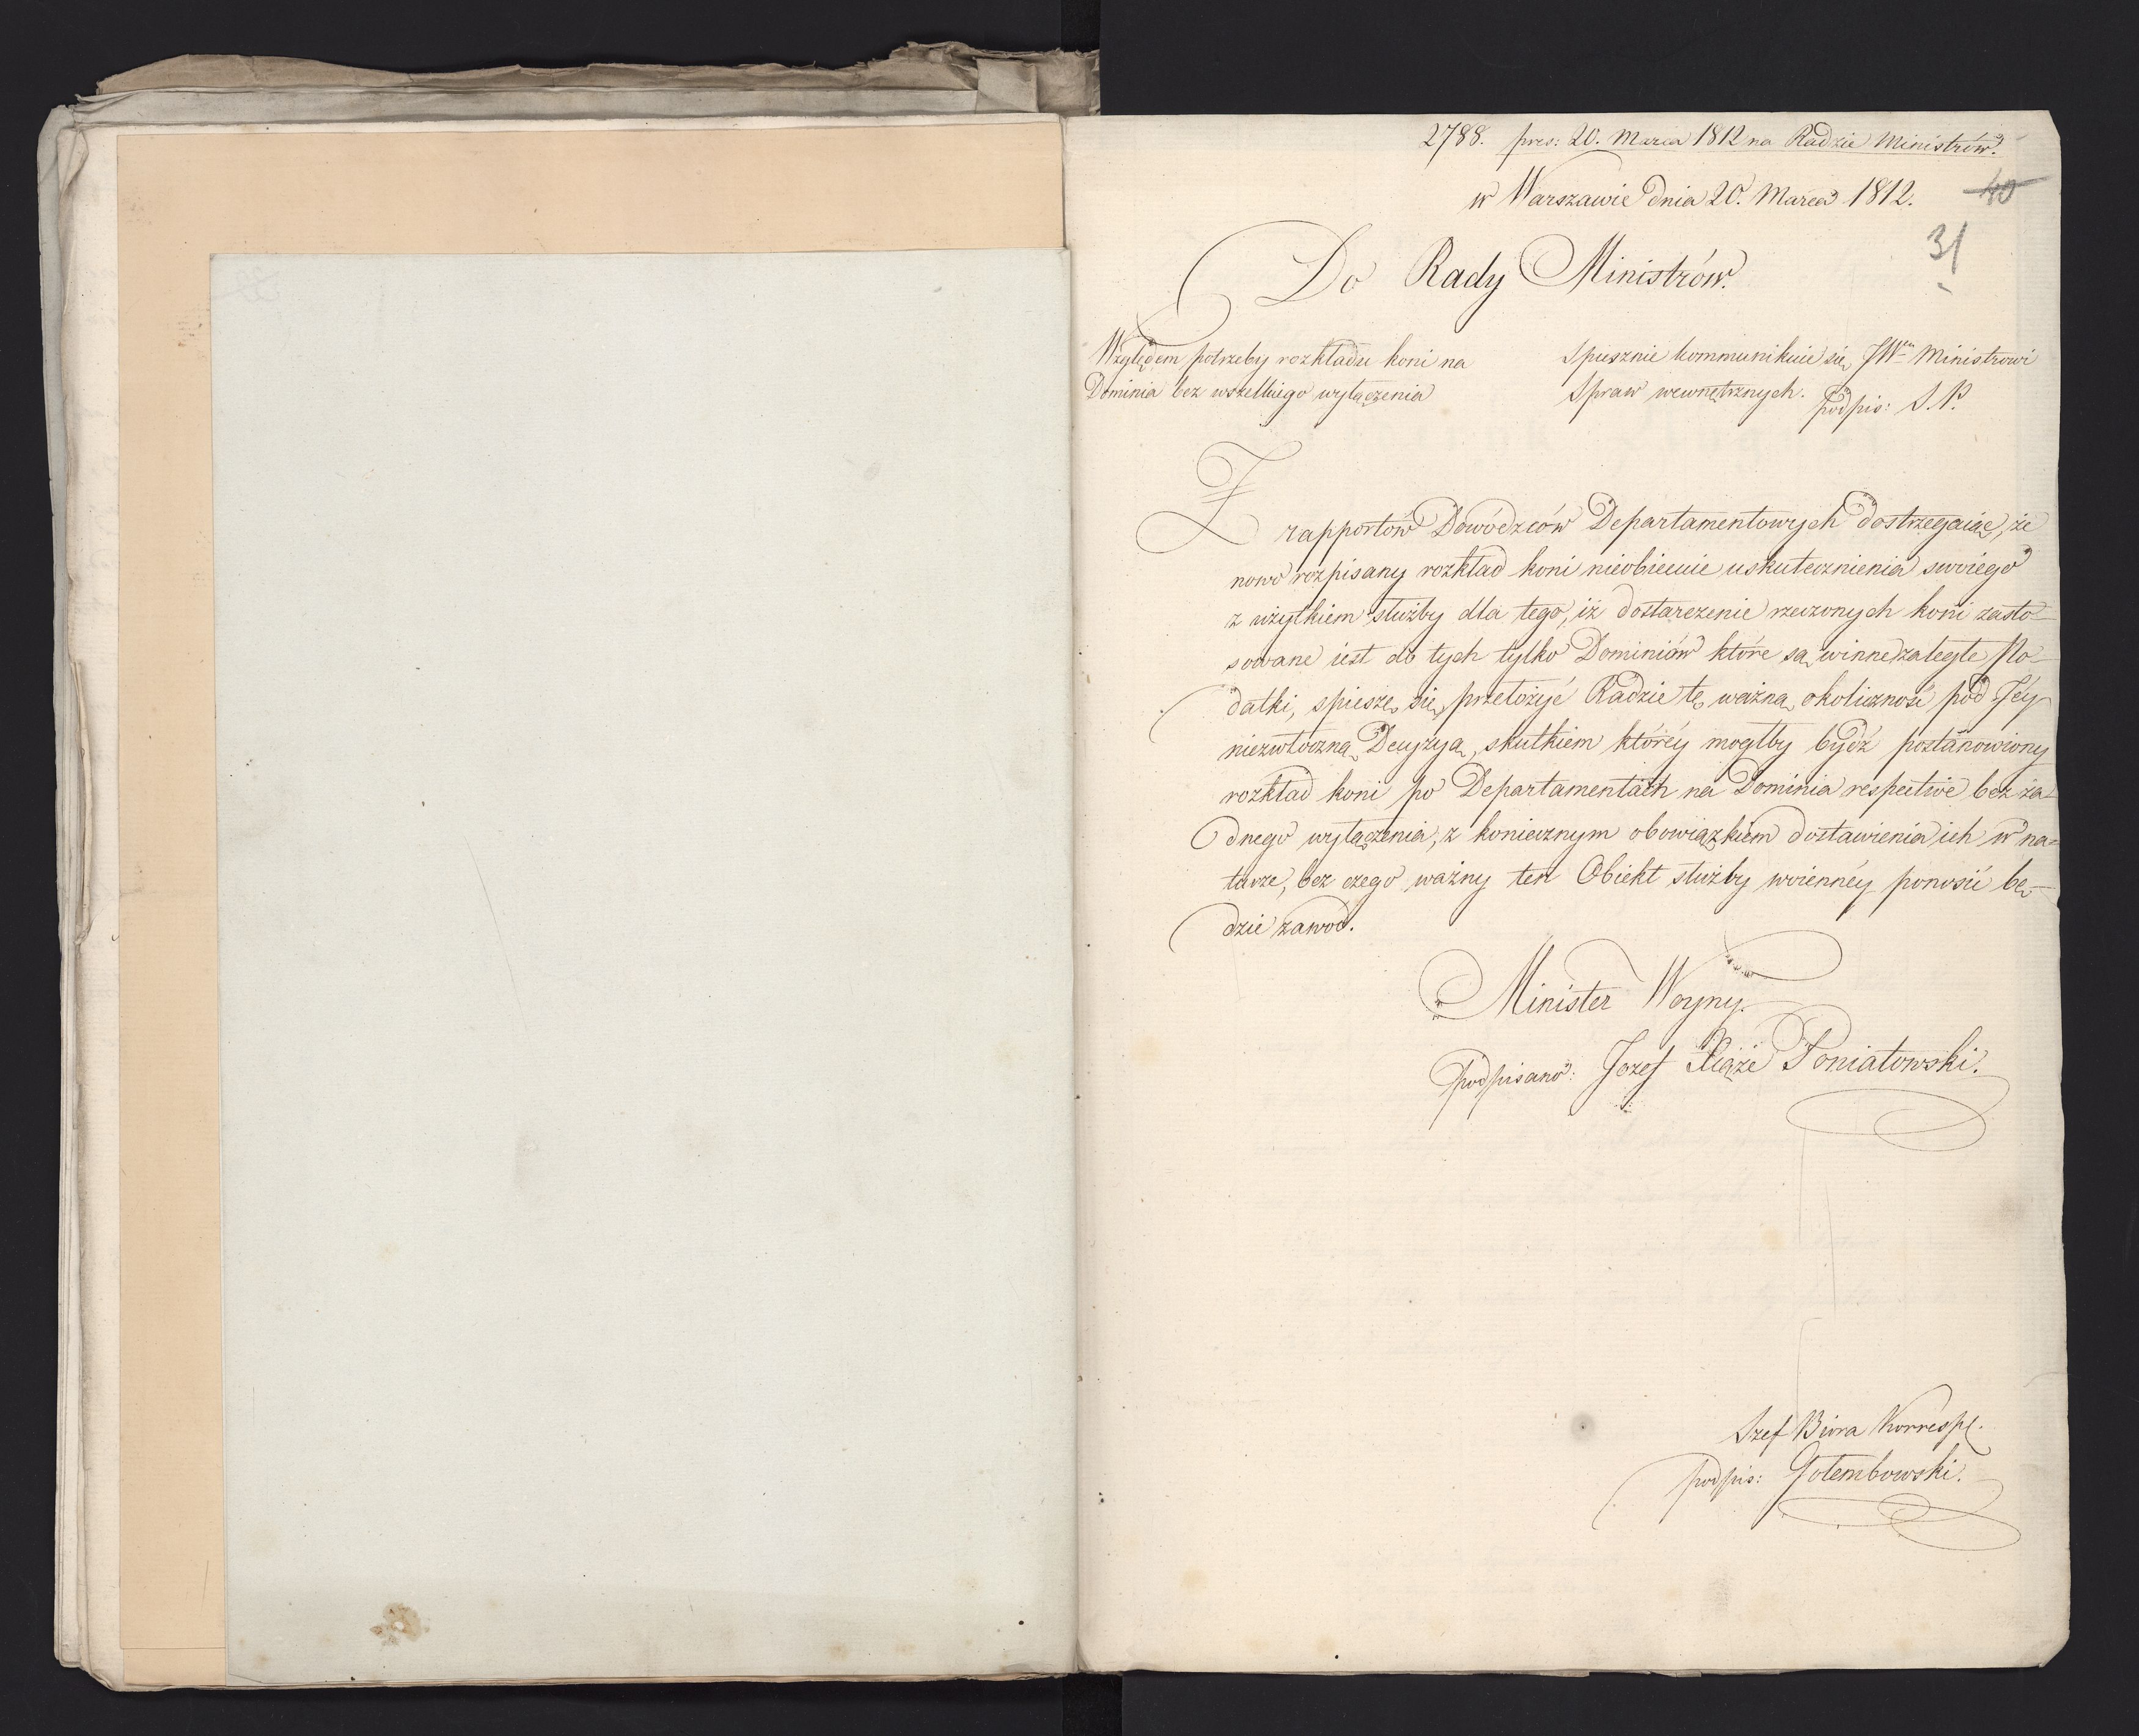 2788. prez: 20. Marca 1812 na Radzie Ministrów.
w Warszawie Dnia 20. Marca 1812. 40
31
Do Rady Ministrów.
Względem potrzeby rozkładu koni na
Dominia bez wszelkiego wyłączenia
Spiesznie kommunikuie się JWmu Ministrowi
Spraw wewnętrznych. podpis: S. P.
Z rapportów Dowódzców Departamentowych dostrzegaiąc, że
nowo rozpisany rozkład koni nieobiecuie uskutecznienia swoiego
z użytkiem służby dla tego, iż dostarczenie rzeczonych koni zasto-
sowane iest do tych tylko Dominiów które są winne zaległe Po-
datki, spieszę się przełożyć Radzie tę ważną okoliczność pod Jéy
niezwłoczną Decyzyą, skutkiem któréy mógłby bydź postanowiony
rozkład koni po Departamentach na Dominia respective bez ża-
dnego wyłączenia, z koniecznym obowiązkiem dostawienia ich w na-
turze, bez czego ważny ten Obiekt służby woiennéy ponosić bę-
dzie zawód.
Minister Woyny.
podpisano: Jozef Xiąże Poniatowski.
Szef Biora Korresp.
podpis: Gołembowski.